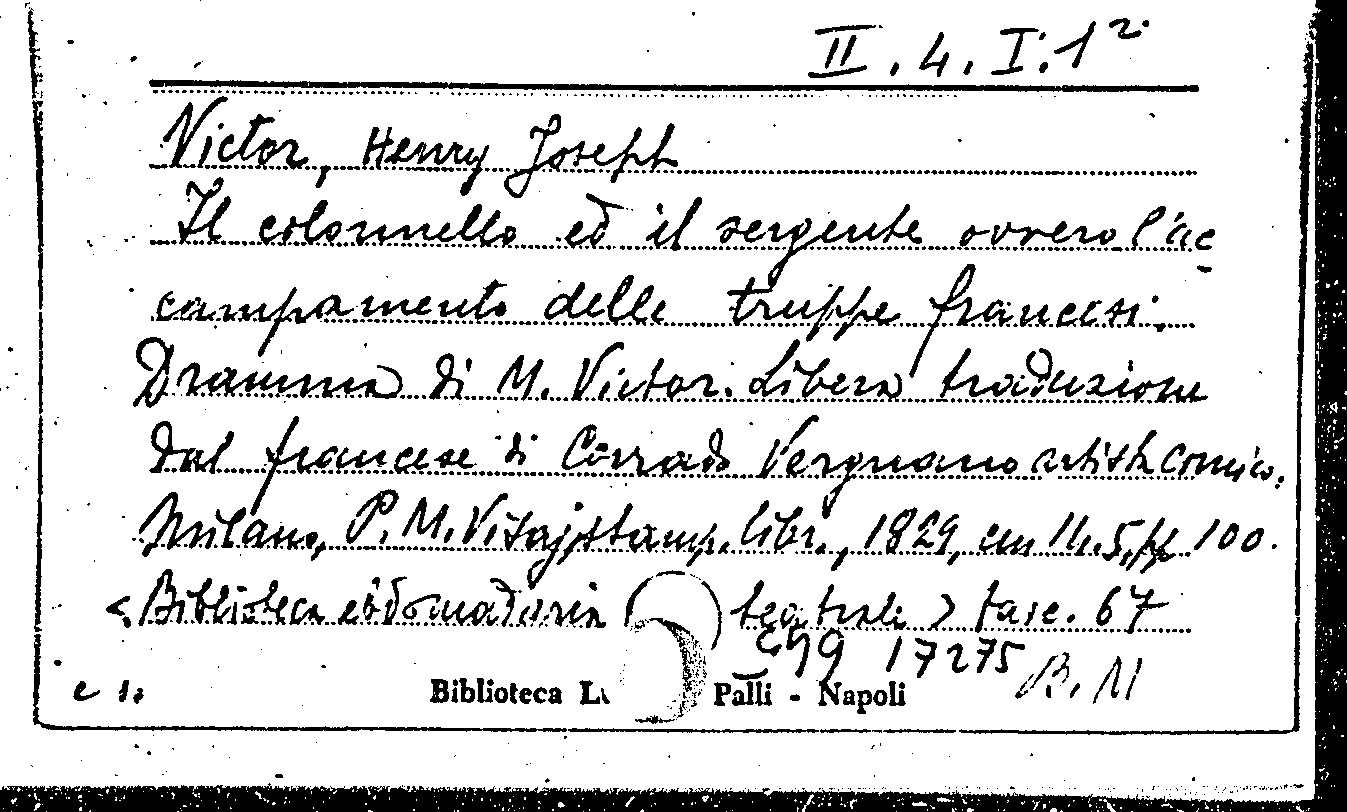 II. 4. I. 1²·
Victor, Henry Joseph
Il colonnello ed il sergente ovvero l'ac
campamento delle truppe francesi.
Dramma di M. Victor. Libera traduzione
dal francese di Corrado Vergnano artista comico.
Milano, P. M. Visaj, stamp. libr., 1829, cm 14.5, pp 100.
<Biblioteca ebdomadaria teatrale> fasc. 67
17275 B. M
Biblioteca Palli - Napoli